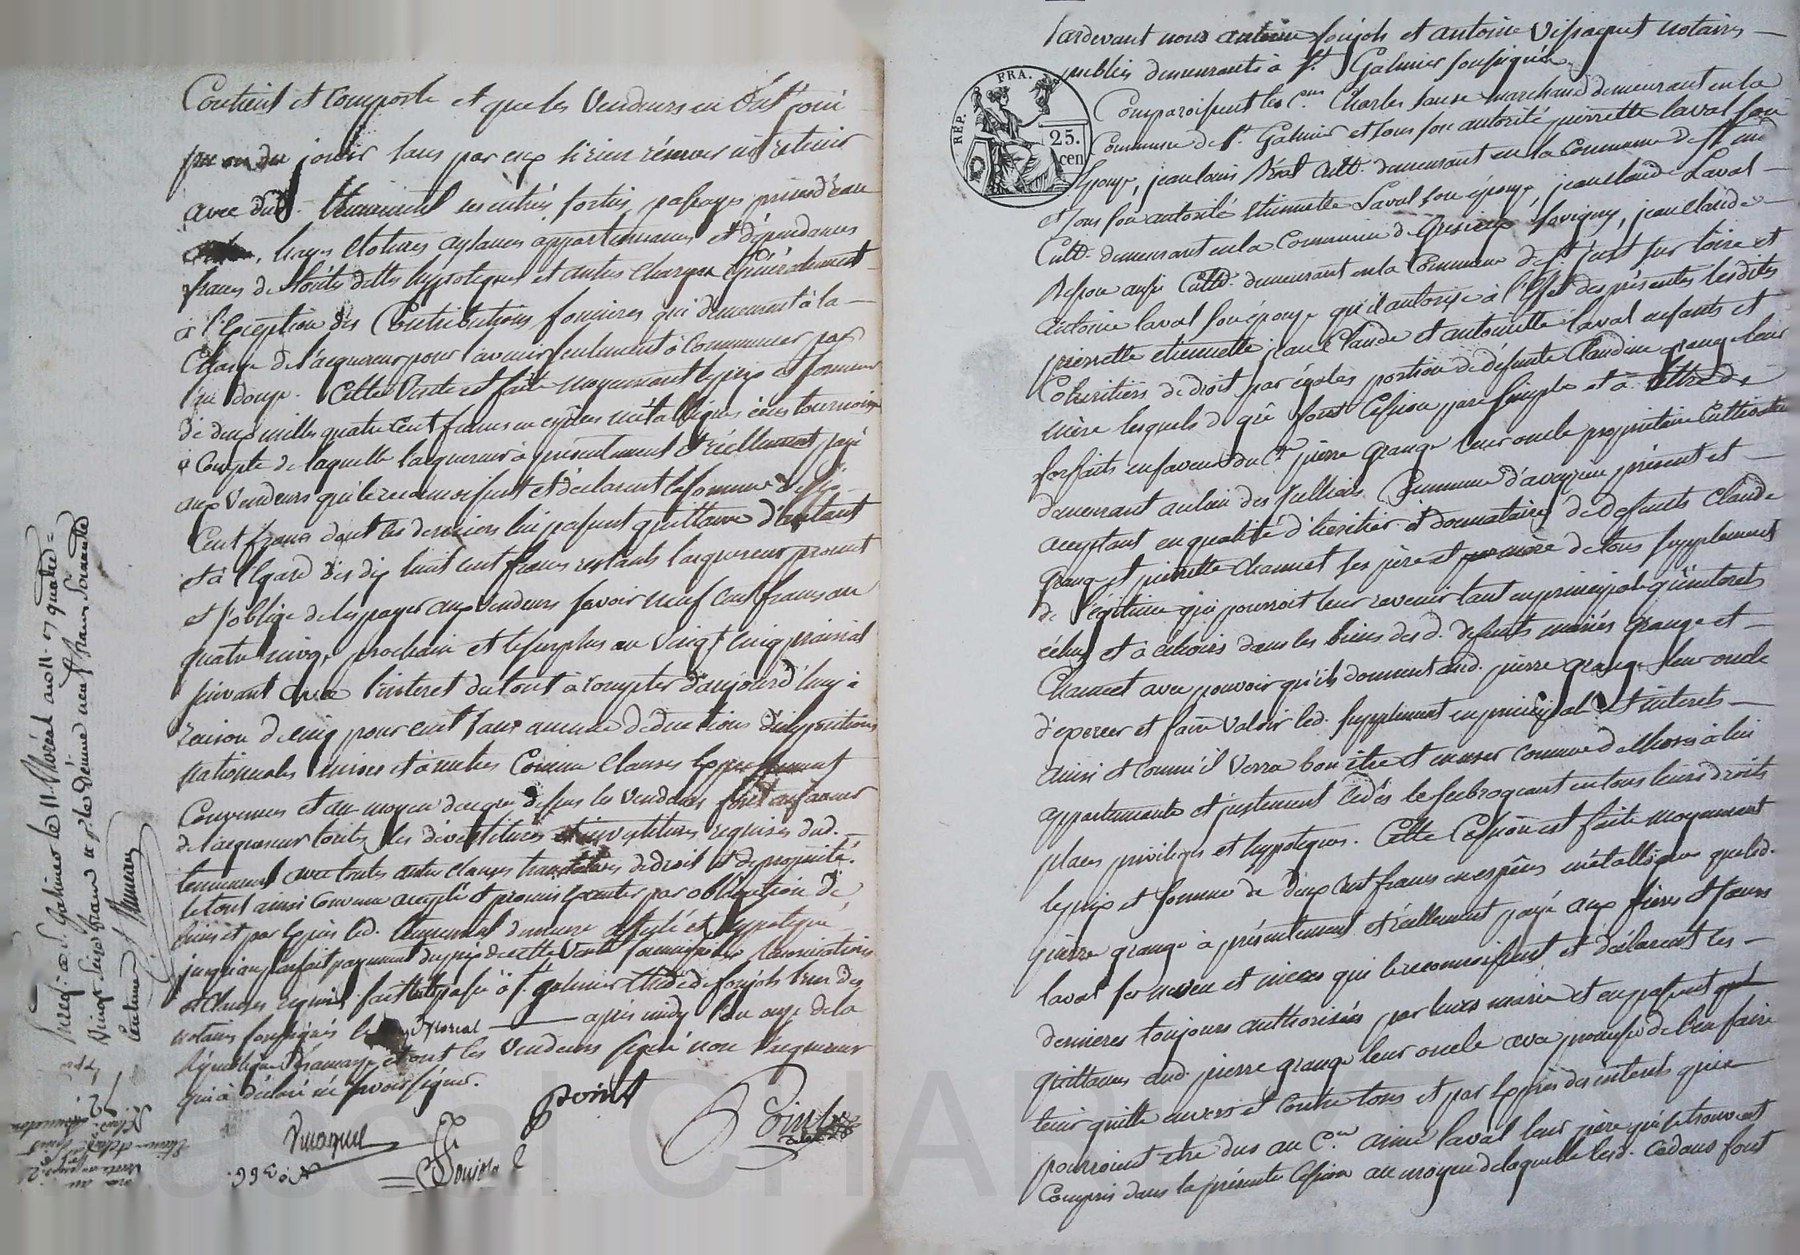 Contient et comporte et que les vendeurs en ont joui
pu ou du jouir sans par eux s'y rien réserver ni retenir
avec dud. tennement ses entrés, sorties, passages prises d'eau
hayes clotures aysances appartenances et dépendances
franc de toutes dettes hypoteques et autres charges généralement
à l'exception des Contributions foncieres qui demeurent à la
charge de l'acquereur pour l'avenir seulement à commencer par
l'an douze. Cette vente est faite moyennant le prix et somme
de deux milles quatre cent francs en espèces métalliques écus tournois
à compte de laquelle l'acquereur a présentement et réellement payé
aux vendeurs qui le reconnoissent et déclarent la somme de six
cent francs dont les derniers lui passent quittance d'autant
et à l'égard des dix huit cent francs restants l'acquereur promet
et s'oblige de les payer aux vendeurs savoir neuf cent francs au
quatre nivos prochain et le surplus au vingt cinq prairial
suivant avec l'interet du tout à compter d'aujourd'huy à
raison de cinq pour cent sans aucune deductions d'impositions
nationales mises et à mettre comme clauses expressément
convenues et au moyen de ce que dessus les vendeurs font en faveur
de l'acquereur toutes les devestitures et investitures requises dud.
tennement avec toutes autres clauses translatives de droit et de propriété.
le tout ainsi convenu accepté et promis executer par obligation de
biens et par exprès led. tennement demeure affecté et hypotequé
jusqu'au parfait payement du prix de cette vente soumissions renonciations
et clauses requises. fait et passé à St. galmier Etude de foujols l'un des
notaires soussignés le floreal après midy l'an onze de la
République française et ont les vendeurs signé non l'acquereur
qui a déclaré ne savoir signer.
Point
Foujols
N.o 366.
Enreg. à St. Galmier le 11 floréal an 11
Pardevant nous antoine foujols et antoine Vissaguet notaires
publics demeurants à St. Galmier soussignés
Comparoissent les Cens Charles fause marchand demeurant en la
Commune de St. Galmier et sous son autorité pierrette laval son
épouse, jean louis Réal Cultr. demeurant en la commune de St.
et sous son autorité Etiennette Laval son épouse, jean claude Laval
Cultr. demeurant en la commune de Grezieux Savigny, jean claude
aussi Cultr. demeurant en la Commune de St just sur loire et
antoine laval son épouse qu'il autorise à l'effet des présentes lesdites
pierrette etiennette jean Claude et antoinette laval enfants et
Cohéritiers de droit par égales portion de défunte Claudine grange leur
mère lesquels de gré font Cession pure simple et à titre de
forfaits en faveur du Cen. pierre Grange leur oncle propriétaire cultivateur
demeurant au lieu des Commune d'aveyzieu présent et
acceptant en qualité d'héritier et donnataire de defunts Claude
grange et pierrette Chaumet ses père et mère de tous supplement
de légitime qui pourroit leur revenir tant en principal qu'interets
échus et à échoirs dans les biens des d. defunts mariés Grange et
Chaumet avec pouvoir qu'ils donnent aud. pierre grange leur oncle
d'exercer et faire valoir led. supplement en principal et interets
ainsi et comme il verra bon être et en user comme de choses à lui
appartenante et justement cedés le subrogeant en tous leurs droits
places privileges et hypoteques. Cette Cession est faite moyennant
le prix et somme de deux cent francs en espèces métalliques que led.
pierre grange a présentement et réellement payé aux frères et sœurs
laval ses neveu et nieces qui le reconnoissent et déclarent les
dernieres toujours authorisées par leurs maris et en passent
quittances aud. pierre grange leur oncle avec promesse de l'en faire
tenir quitte envers et contre tous et par exprès des interets qui
pourroient etre dus au Cen. aimé laval leur père qui se trouvent
Compris dans la présente Cession au moyen de laquelle lesd. cedans font
RÉP. FRA.
25.
cen
Pascal CHAREY